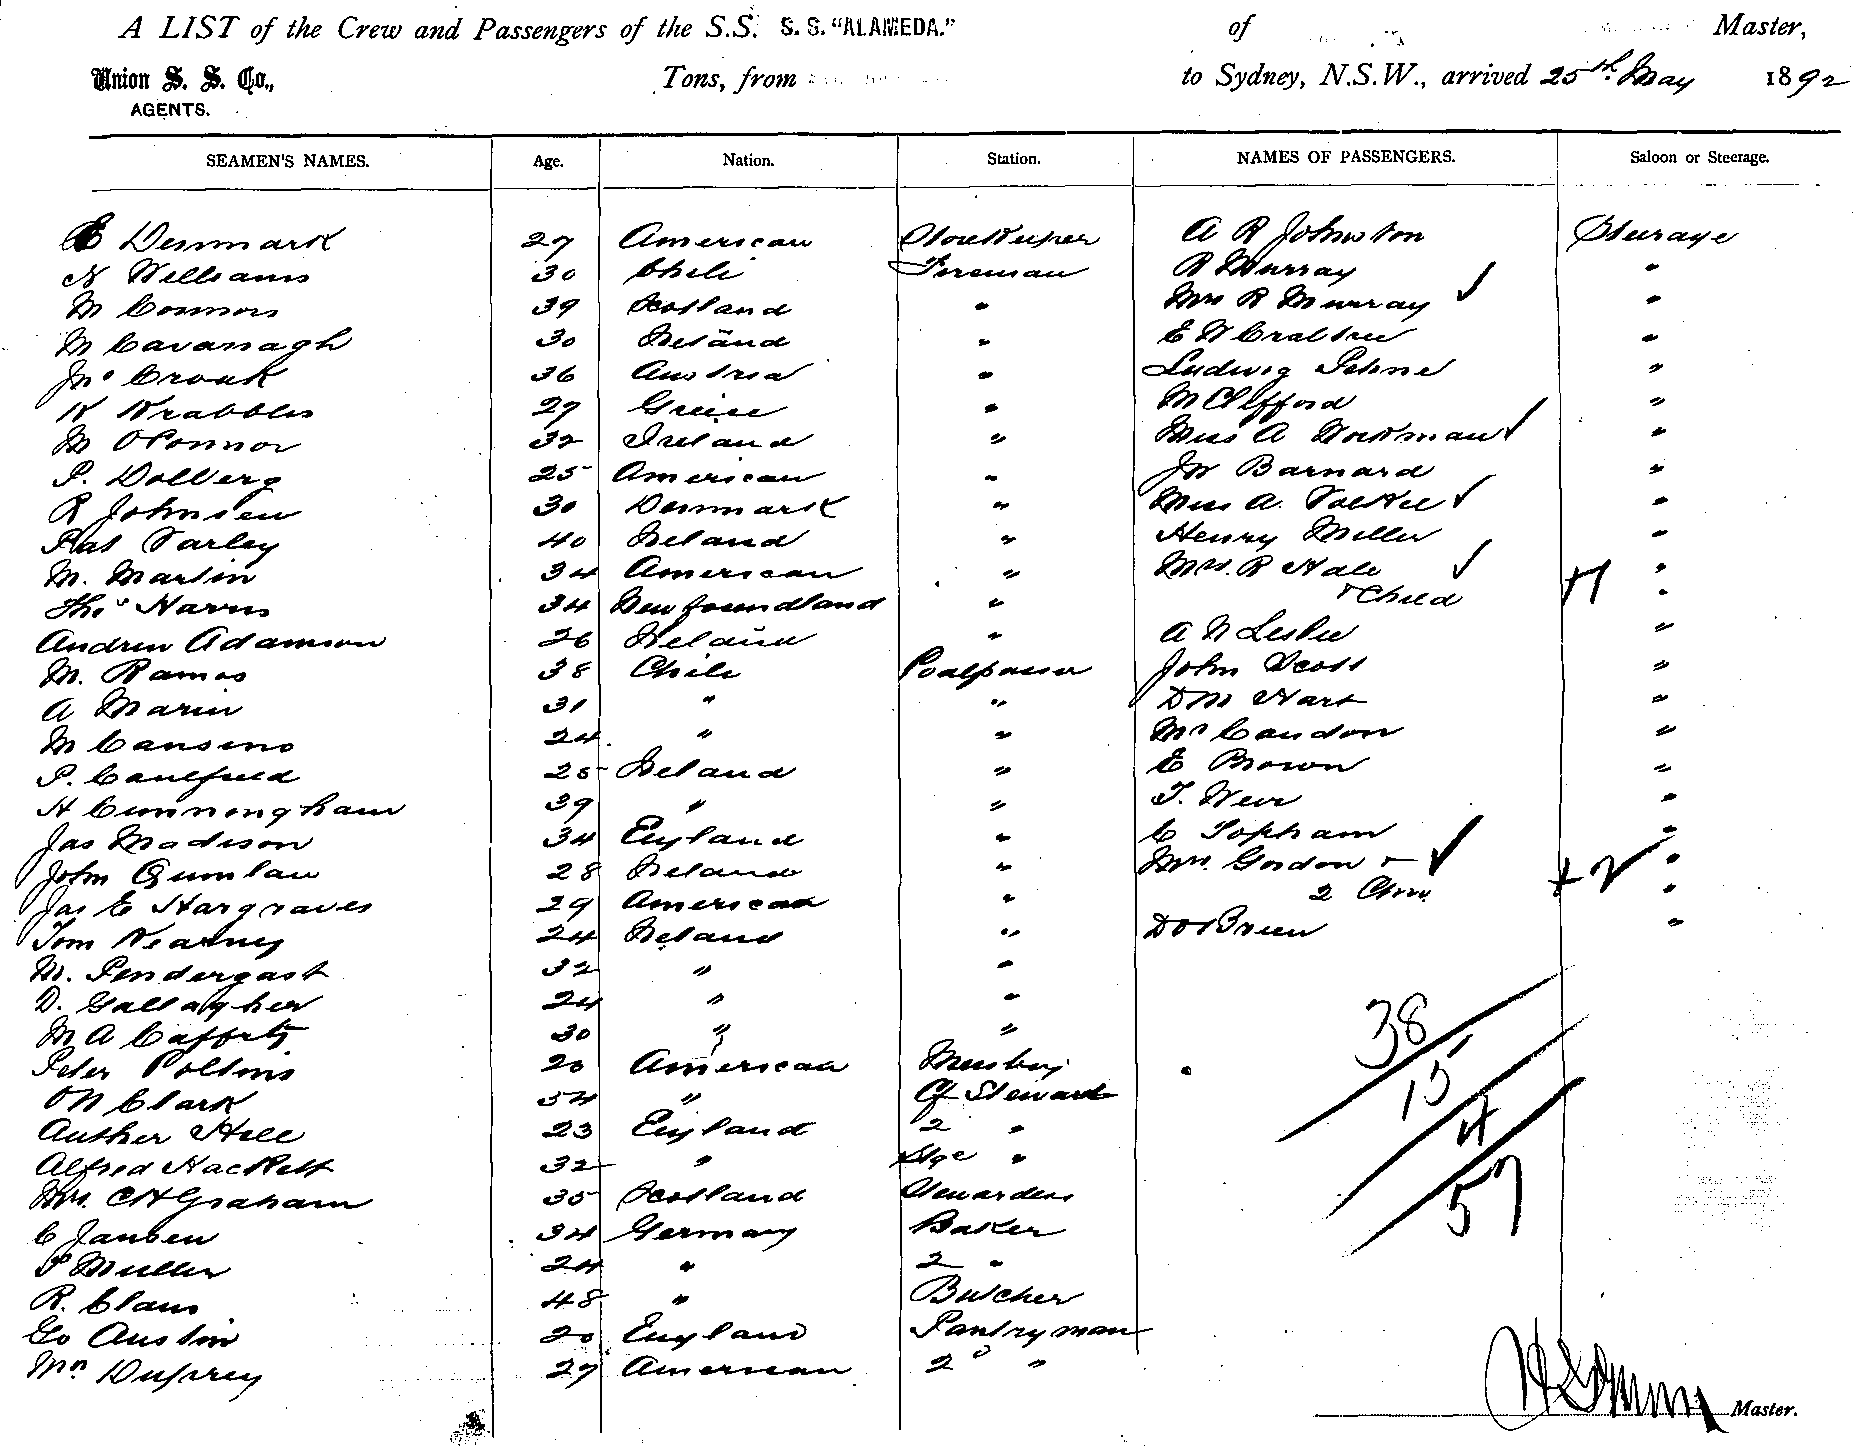 A LIST of the Crew and Passengers of the S.S. S. S. "ALAMEDA." of Master,
Union S. S. Co., Tons, from to Sydney, N.S.W., arrived 25th May 1892
AGENTS.
SEAMEN'S NAMES. Age. Nation. Station. NAMES OF PASSENGERS. Saloon or Steerage.
E Denmark 27 American Storekeeper A R Johnston Steerage
N Williams 30 Chili Fireman R Murray "
M Connors 39 Scotland " Mrs R Murray "
M Cavanagh 30 Ireland " E W Crabtree "
Jno Croak 36 Austria " Ludwig "
K Krabbles 27 Greece " M Clifford "
M O'Connor 32 Ireland " Miss A Workman "
P. Dolberg 25 American " Jn Barnard "
R Johnsen 30 Denmark " Miss A. "
Pat Varley 40 Ireland " Henry Miller "
M. Martin 34 American " Mrs. R Hale "
Thos Harris 34 Newfoundland " + Child "
Andrew Adamson 26 Ireland " A W Leslie "
M. Ramos 38 Chile Coalpasser John Scott "
A Marin 31 " " D M Hart "
M Cansino 24 " " Mr Candon "
P. Caulfield 25 Ireland " E Brown "
H Cunningham 39 " " T. Weir "
Jas Madison 34 England " C Topham "
John Quinlan 28 Ireland " Mrs. Gordon + "
Jas E Hargraves 29 American " 2 Chn. + 2 "
Tom Kearney 24 Ireland " D O'Brien "
M. Pendergast 32 " "
D. Gallagher 24 " "
M A Cafferty 30 " "
Peter Collins 20 American Messboy
O N Clark 54 " Cf Steward
Auther Hill 23 England 2 "
Alfred Hackett 32 " Stge "
Mrs. C H Graham 35 Scotland Stewardess
C Jansen 34 Germany Baker
P Muller 24 " 2 "
R. Claus 48 " Butcher
Go Austin 20 England Pantryman
Wm Duffrey 27 American 2 "
38
15
4
57
Master.